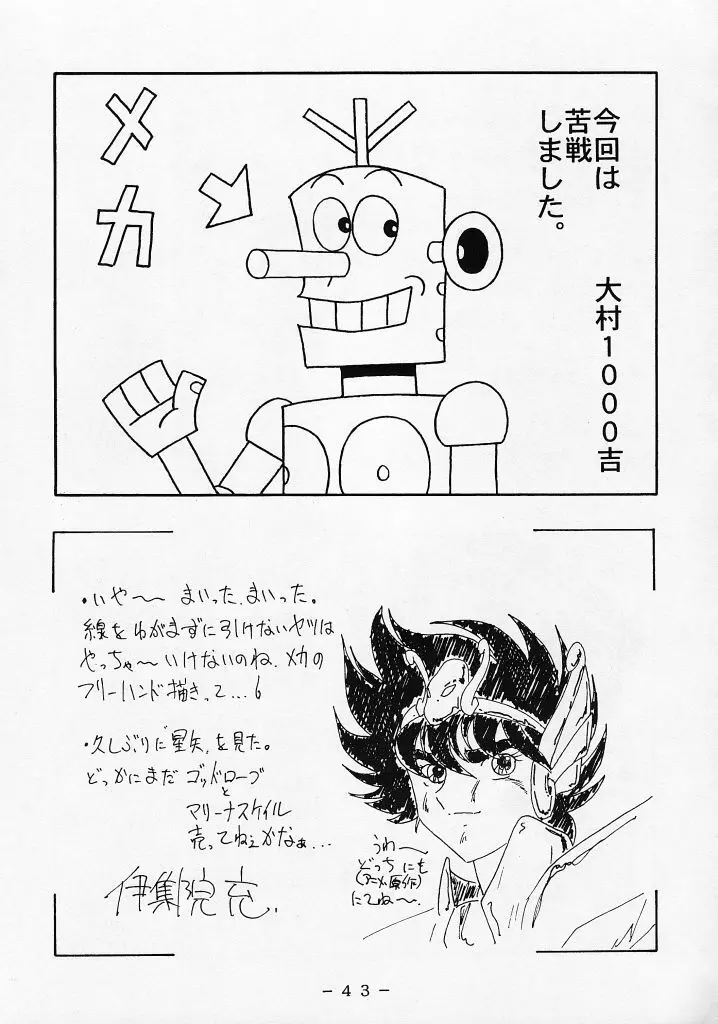 今回は
苦戦
しました。
大村1000吉
メカ
・いや〜〜 まいった、まいった。
線をゆがまずに引けないヤツは
やっちゃ〜いけないのね、メカの
フリーハンド描きって…6
・久しぶりに"星矢"を見た。
どっかにまだ ゴッドローブ
と
マリーナスケイル
売ってねぇかなぁ…
伊集院充.
うわ〜
どっちにも
(アニメ・原作)
にてね〜.
－43－